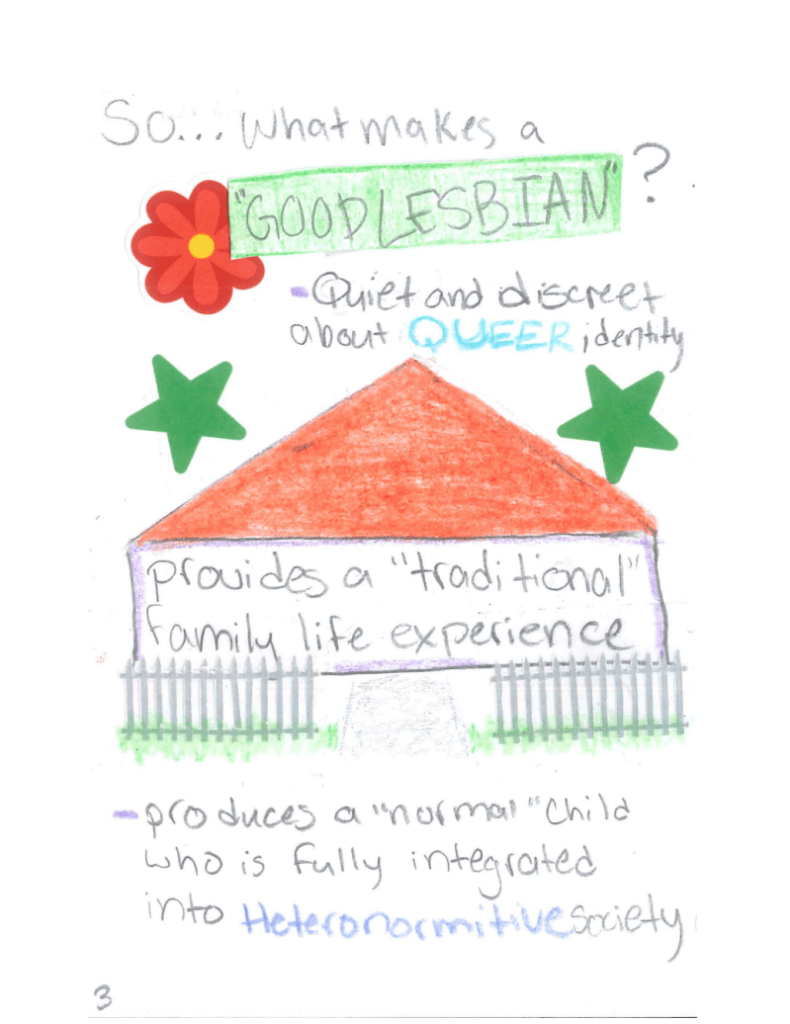 So... What makes a
"GOOD LESBIAN" ?
- Quiet and discreet
about QUEER identity
provides a "traditional"
family life experience
- produces a "normal" child
who is fully integrated
into Heteronormitive Society
3